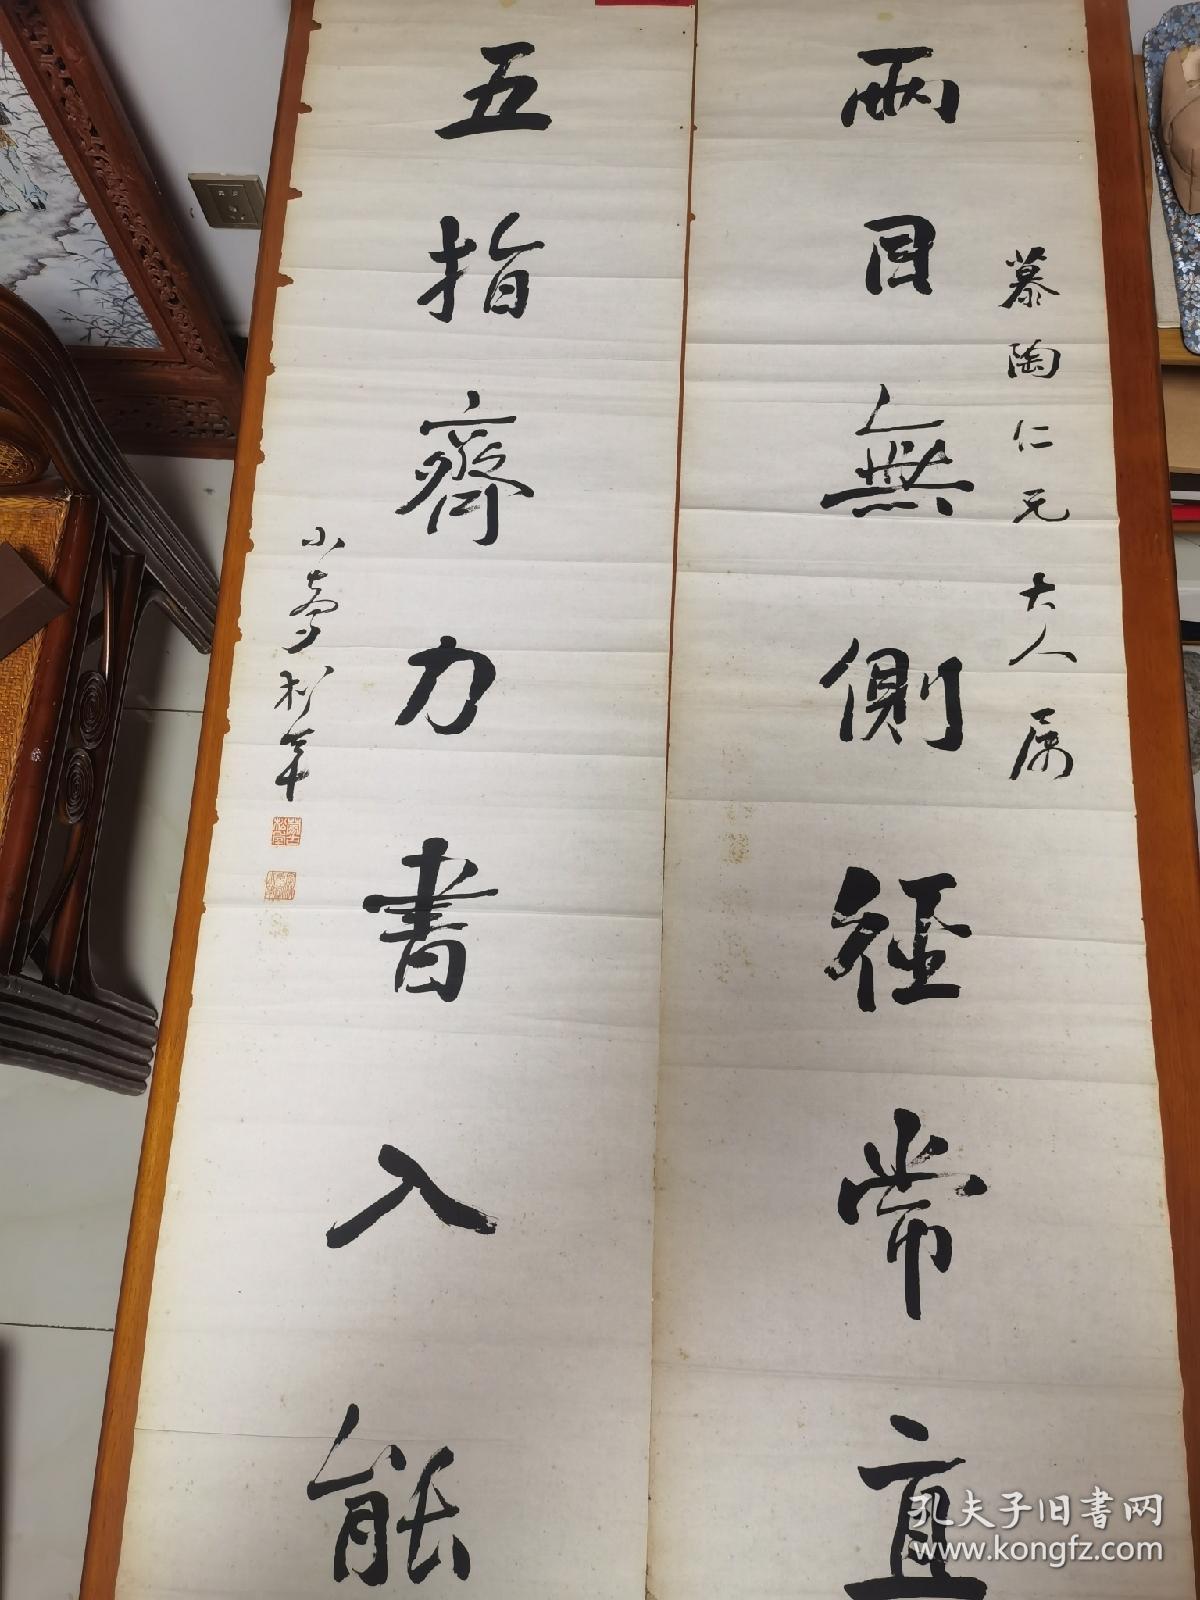 慕陶仁兄大人属
兩目無側徑常直
五指齊力書入能
小
松年
孔夫子旧书网
www.kongfz.com